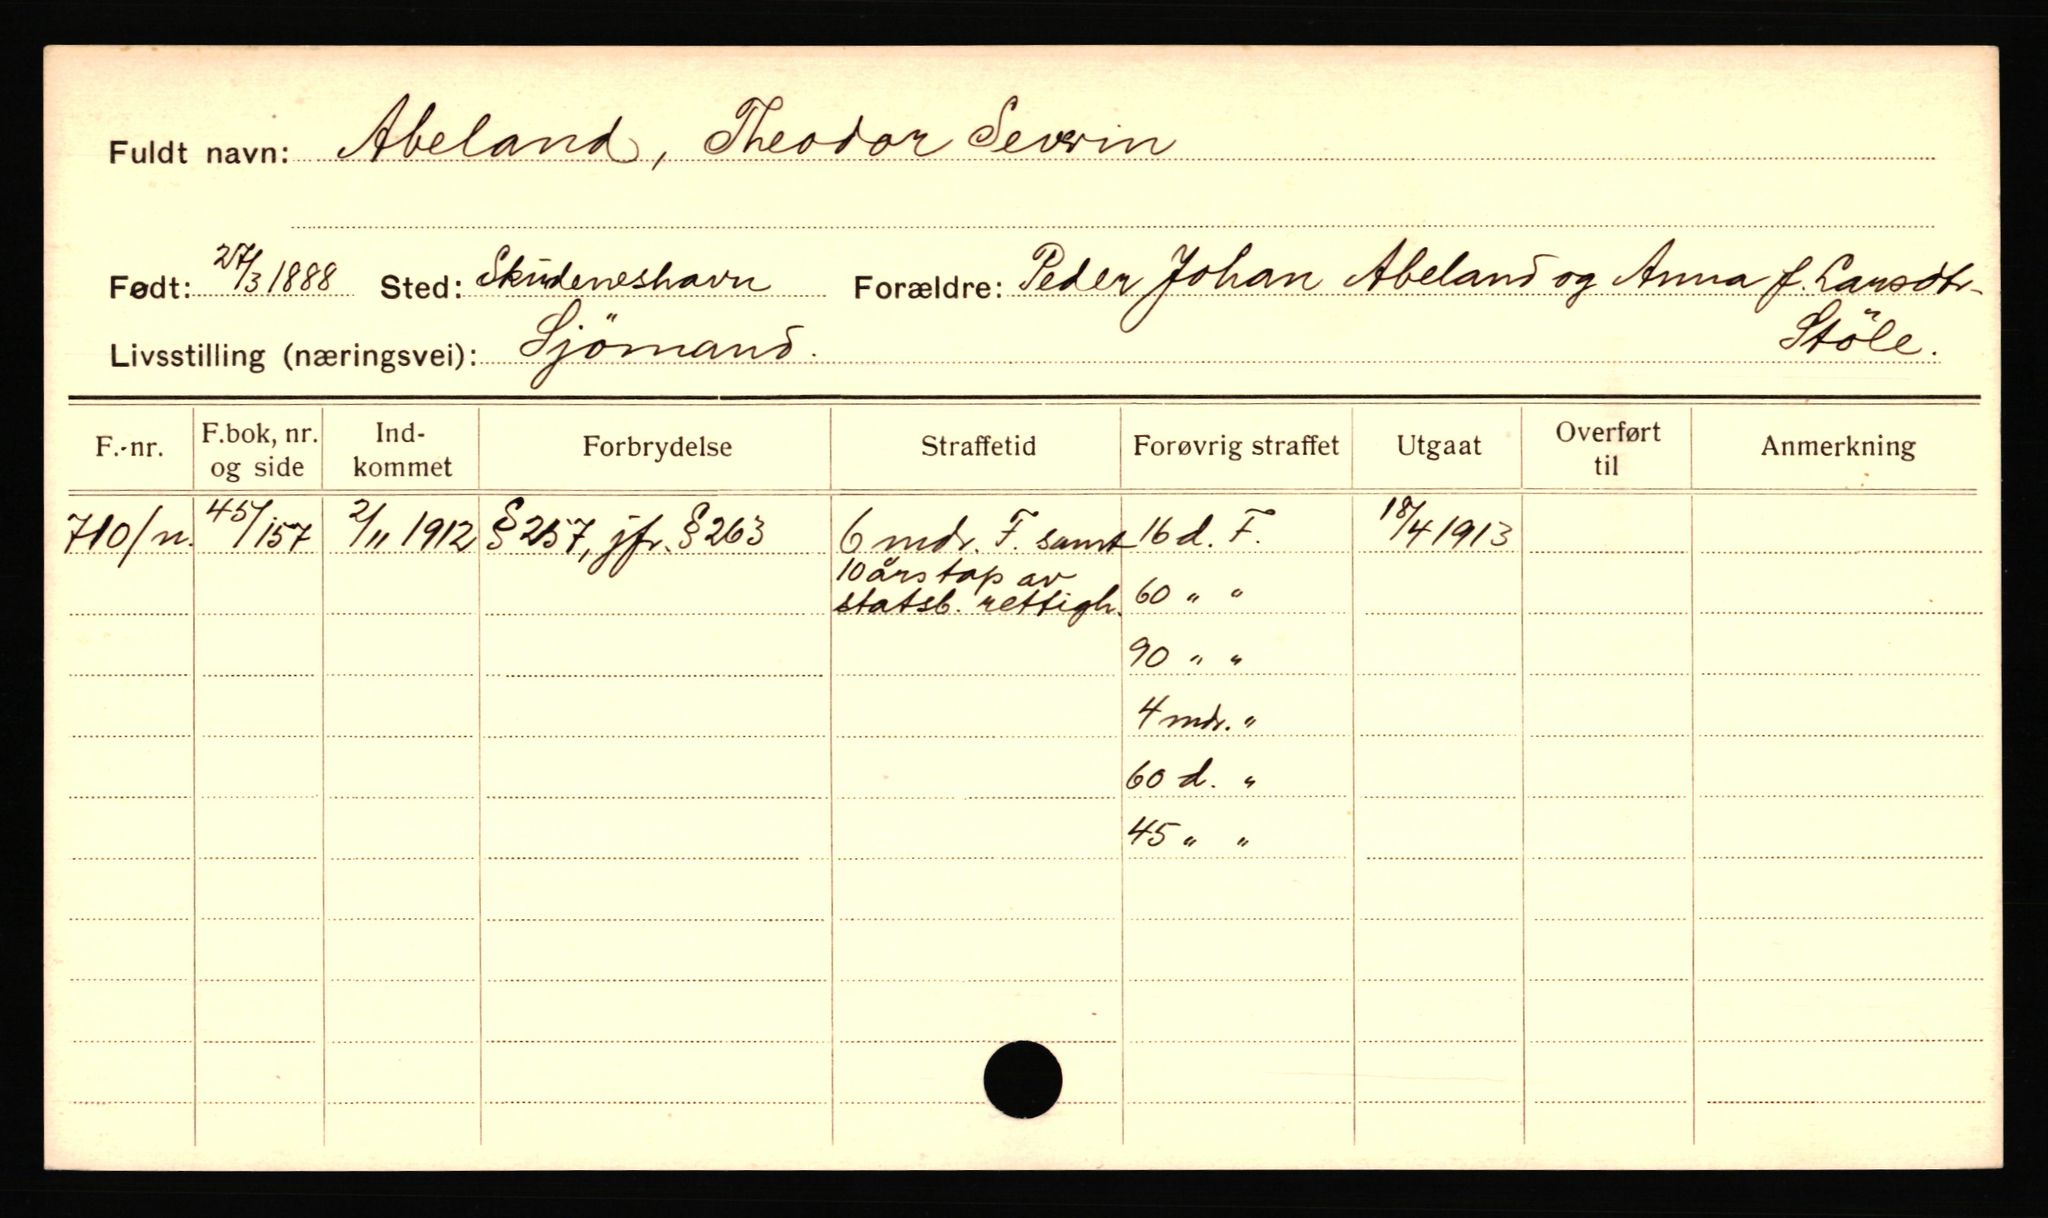 Fuldt navn: Abeland, Theodor Severin
Født: 27/3 1888 Sted: Skudeneshavn Forældre: Peder Johan Abeland og Anna f. Larsdtr.
Livsstilling (næringsvei): Sjömand. Stöle.
F.-nr. F.bok, nr. og side Ind-kommet Forbrydelse Straffetid Forøvrig straffet Utgaat Overført til Anmerkning
710/n. 45/157 2/11 1912 § 257, jfr. § 263 6 mdr. F. samt 16 d. F. 18/4 1913
10 års tap av
statsb. rettigh. 60 " "
90 " "
4 mdr. "
60 d. "
45 " "